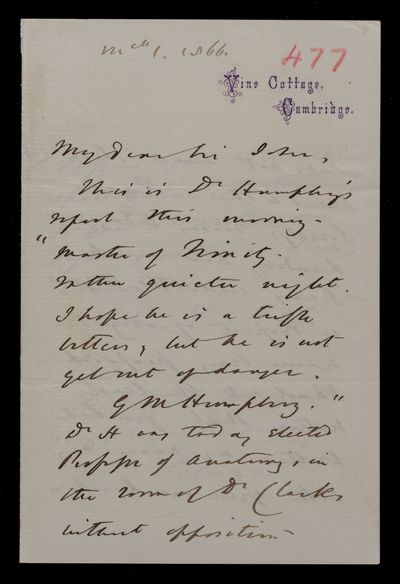 Mch 1. 1866.
477
Vine Cottage,
Cambridge.
My dear Sir John,
This is Dr Humphry's
report this morning -
"Master of Trinity.
Rather quieter night.
I hope he is a trifle
better, but he is not
yet out of danger.
G M Humphry."
Dr H was today elected
Professr of Anatomy, in
the room of Dr Clark,
without opposition -